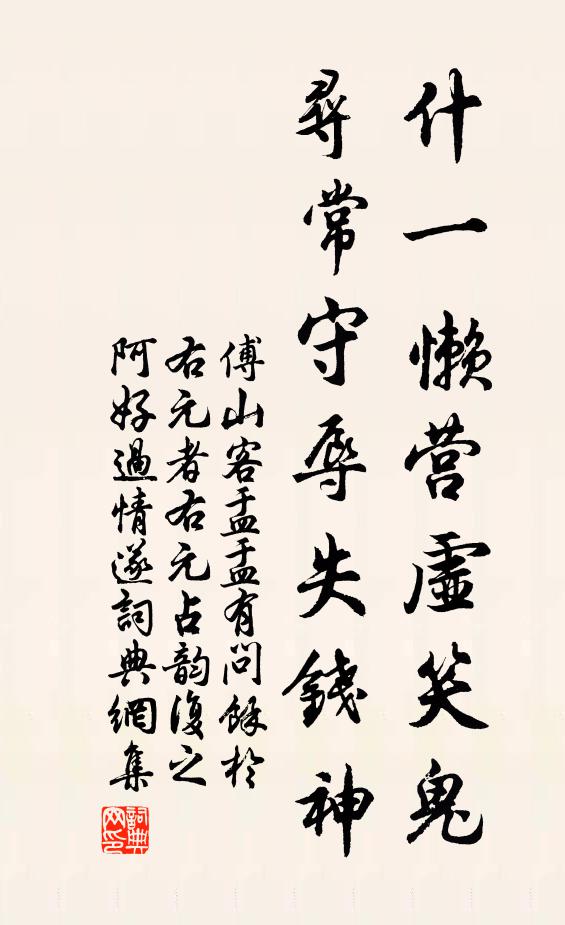 什一懒营虚笑鬼
尋常守辱失錢神
傅山客盂盂有问餘於
右元者右元占韵復之
阿好過情遂詞典網集
詞典网印